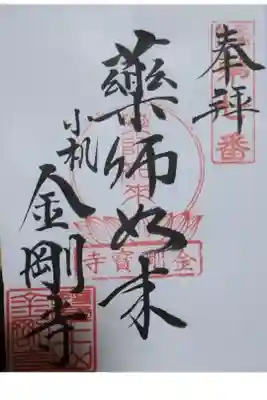 奉拜
藥師如来
金剛寶寺
小机
金剛寺